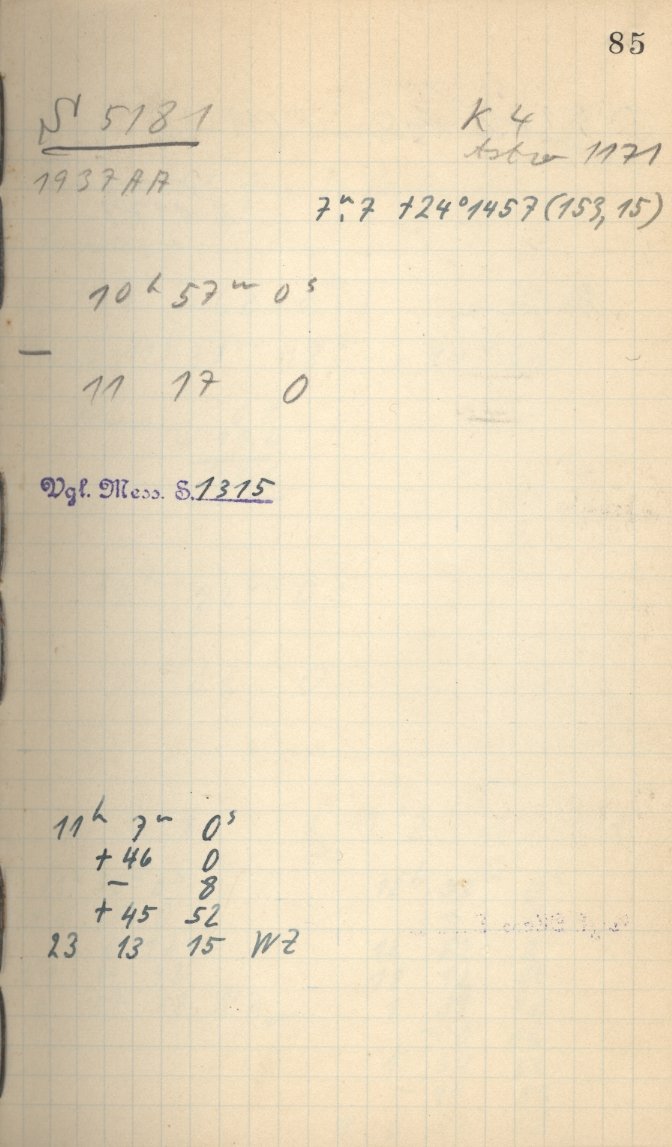 85
S 5181
K 4
Astro 1171
1937 AA
7ᵐ.7 +24°1457 (153,15)
10ʰ 57ᵐ 0ˢ
—
11 17 0
Vgl. Mess. S. 1315
11ʰ 7ᵐ 0ˢ
+ 46 0
– 8
+ 45 52
23 13 15 WZ